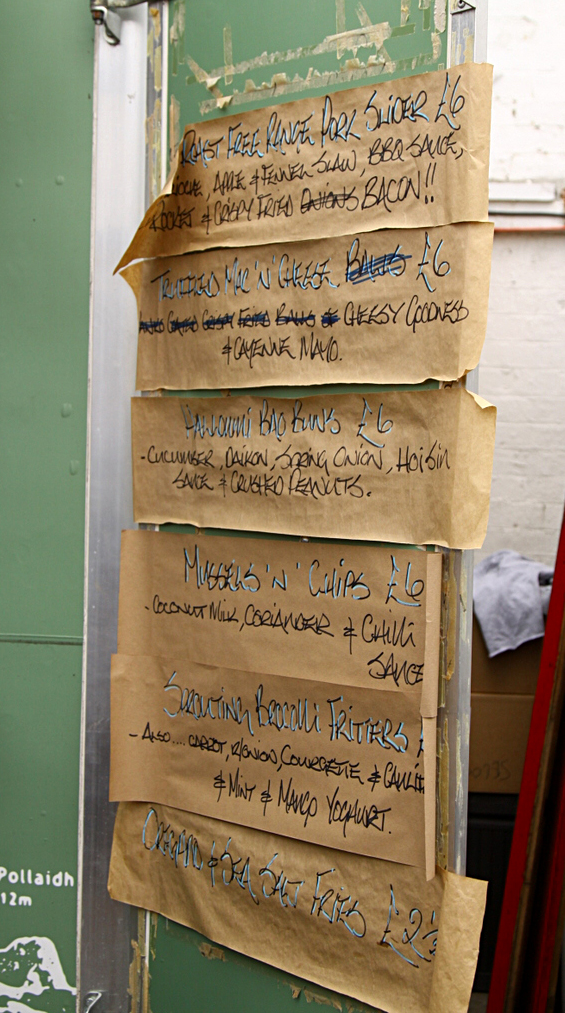 ROAST FREE RANGE PORK SLIDER £6
APPLE & FENNEL SLAW, BBQ SAUCE,
ROCKET & CRISPY FRIED ONIONS BACON!!
TRUFFLED MAC 'N' CHEESE BALLS £6
CRISPY FRIED BALLS OF CHEESY GOODNESS
& CAYENNE MAYO.
HALLOUMI BAO BUNS £6
- CUCUMBER, DAIKON, SPRING ONION, HOISIN
SAUCE & CRUSHED PEANUTS.
MUSSELS 'N' CHIPS £6
- COCONUT MILK, CORIANDER & CHILLI
SAUCE
SPROUTING BROCOLLI FRITTERS
- ALSO.... CARROT, R/ONION, COURGETTE &
& MINT & MANGO YOGHURT.
OREGANO & SEA SALT FRIES £2½
Pollaidh
12m